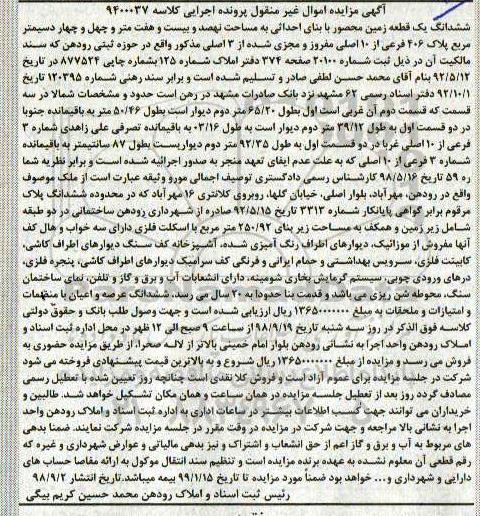 آگهی مزایده اموال غیر منقول پرونده اجرایی کلاسه ۹۴۰۰۰۳۷
ششدانگ یک قطعه زمین محصور با بنای احداثی به مساحت نهصد و بیست و هفت متر و چهل و چهار دسیمتر
مربع پلاک ۴۰۶ فرعی از ۱۰ اصلی مفروز و مجزی شده از ۳ اصلی مذکور واقع در حوزه ثبتی رودهن که سند
مالکیت آن در ذیل ثبت شماره ۲۰۱۰۰ صفحه ۳۷۴ دفتر املاک شماره ۱۲۵ بشماره چاپی ۸۷۷۵۲۴ در تاریخ
۹۲/۵/۱۲ بنام آقای محمد حسن لطفی صادر و تسلیم شده است و برابر سند رهنی شماره ۱۲۰۳۹۵ تاریخ
۹۲/۱۰/۱ دفتر اسناد رسمی ۶۲ مشهد نزد بانک صادرات مشهد در رهن است حدود و مشخصات شمالا در سه
قسمت که قسمت دوم آن غربی است اول بطول ۶۵/۲۰ متر دوم دیوار است بطول ۵۰/۴۶ متر به باقیمانده جنوبا
در دو قسمت اول به طول ۳۹/۱۲ متر دوم دیوار است به طول ۰۳/۱۶ به باقیمانده تصرفی علی زاهدی شماره ۳
فرعی از ۱۰ اصلی غربا در دو قسمت اول به طول ۹۲/۳۵ متر دوم دیواریست بطول ۸۷ سانتیمتر به باقیمانده
شماره ۳ فرعی از ۱۰ اصلی که به علت عدم ایفای تعهد منجر به صدور اجرائیه شده است و برابر نظریه شما
ره ۵۹ تاریخ ۹۸/۵/۱۶ کارشناس رسمی دادگستری توصیف اجمالی مورو وثیقه عبارت است از ملک موصوف
واقع در رودهن، مهرآباد، بلوار اصلی، خیابان گلها، روبروی کلانتری ۱۶ مهرآباد که در محدوده ششدانگ پلاک
مرقوم برابر گواهی پایانکار شماره ۳۳۱۳ تاریخ ۹۲/۵/۱۵ صادره از شهرداری رودهن ساختمانی در دو طبقه
شامل زیر زمین و همکف به مساحت زیر بنای ۲۵۰/۹۲ متر مربع با اسکلت فلزی دارای سه خواب و هال کف
آنها مفروش از موزائیک، دیوارهای اطراف رنگ آمیزی شده، آشپزخانه کف سنگ دیوارهای اطراف کاشی،
کابینت فلزی، سرویس بهداشتی و حمام ایرانی و فرنگی کف سرامیک دیوارهای اطراف کاشی، پنجره فلزی
درهای ورودی چوبی، سیستم گرمایش بخاری شومینه. دارای انشعابات آب و برق و گاز و تلفن، نمای ساختمان
سنگ، محوطه شن ریزی می باشد و قدمت بنا حدودا به ۲۰ سال می رسد. ششدانگ عرصه و اعیان با منظمات
و امتیازات و ملحقات به مبلغ ۱۳۶۵۰۰۰۰۰۰۰ ریال ارزیابی شده است و جهت وصول طلب بانک و حقوق دولتی
کلاسه فوق الذکر در روز سه شنبه تاریخ ۹۸/۹/۱۹ از ساعت ۹ صبح الی ۱۲ ظهر در محل اداره ثبت اسناد و
املاک رودهن واحد اجرا به نشانی رودهن بلوار امام خمینی بالاتر از لاله صحرا، از طریق مزایده حضوری به
فروش می رسد و مزایده از مبلغ ۱۳۶۵۰۰۰۰۰۰۰ ریال شروع و به بالاترین قیمت پیشنهادی فروخته می شود
شرکت در جلسه مزایده برای عموم آزاد است و فروش کلا نقدی است چنانچه روز تعیین شده با تعطیل رسمی
مصادف گردد روز بعد از تعطیل جلسه مزایده در همان ساعت و همان مکان تشکیل خواهد شد. طالبین و
خریداران می توانند جهت کسب اطلاعات بیشتر در ساعات اداری به اداره ثبت اسناد و املاک رودهن واحد
اجرا به نشانی بالا مراجعه و جهت شرکت در مزایده در وقت مقرر در جلسه مزایده شرکت نمایند. ضمنا بدهی
های مربوط به آب و برق و گاز اعم از حق انشعاب و اشتراک و نیز بدهی مالیاتی و عوارض شهرداری و غیره که
رقم قطعی آن معلوم نشده به عهده برنده مزایده است و تنظیم سند انتقال موکول به ارائه مفاصا حساب های
دارایی و شهرداری و... خواهد بود ضمناً مورد مزایده تا تاریخ ۹۹/۱/۱۵ بیمه میباشد.تاریخ انتشار ۹۸/۹/۲
رئیس ثبت اسناد و املاک رودهن محمد حسین کریم بیگی